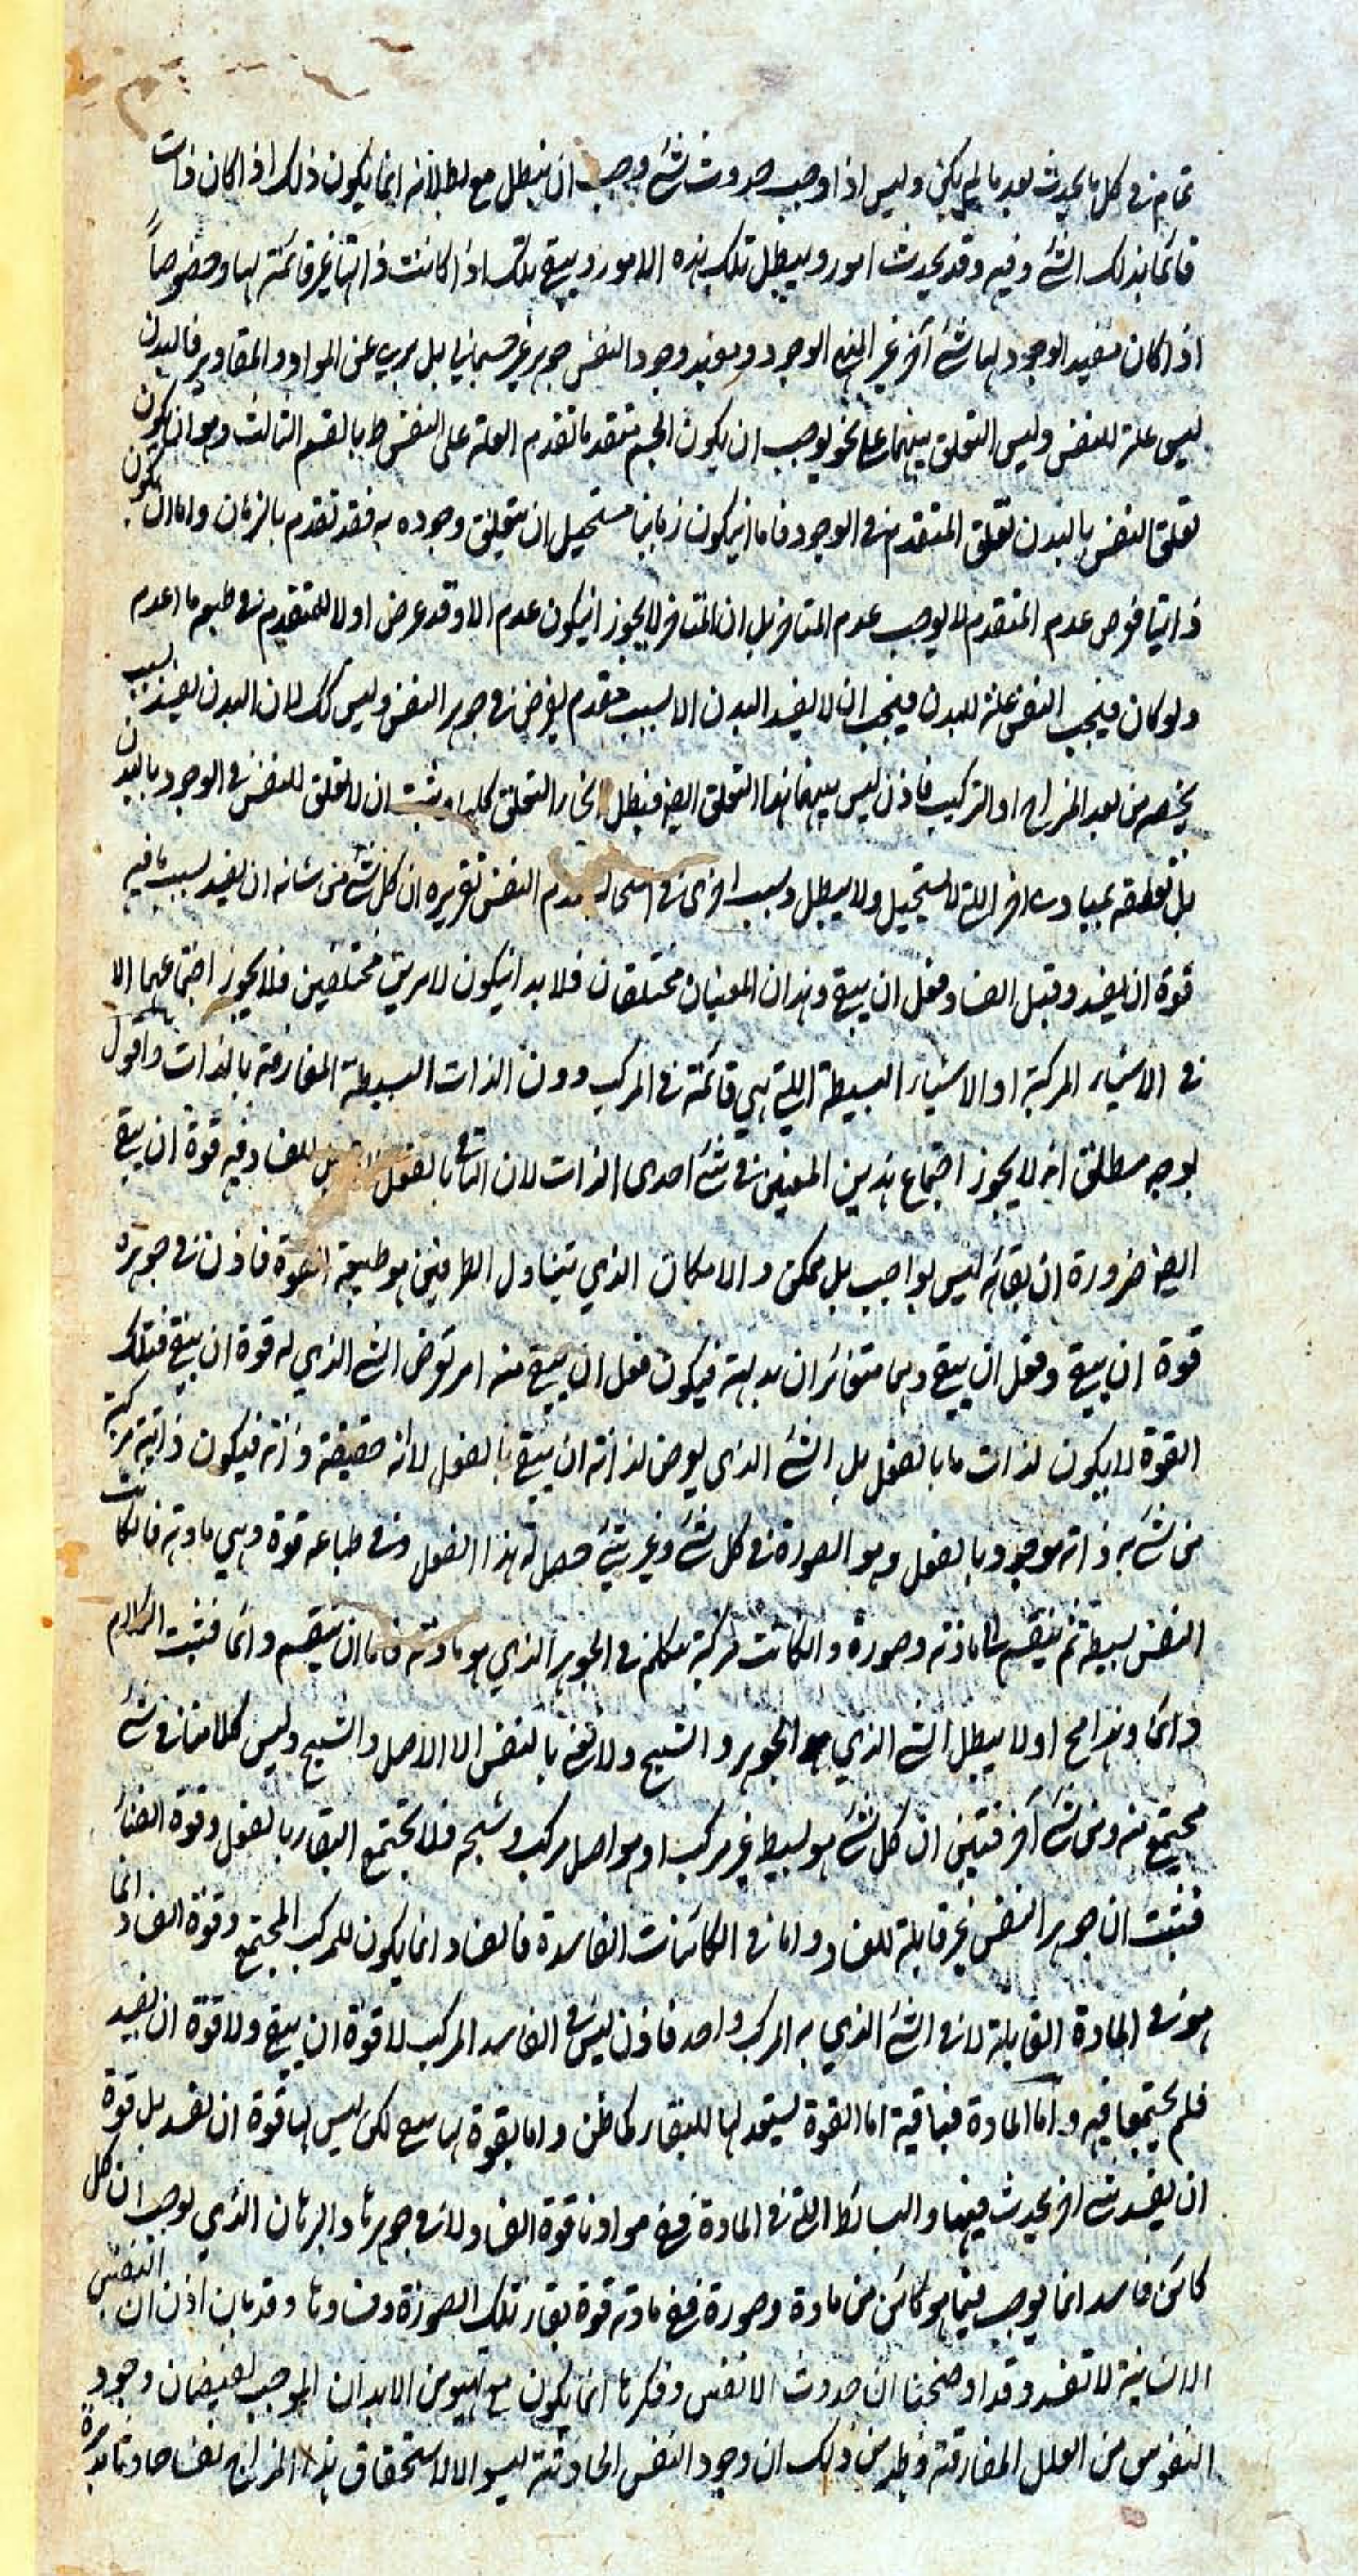 تمام في كل ما يحدث بعد ما لم يكن وليس اذا وجب حدوث شئ وجب ان يبطل مع بطلانه انما يكون ذلك اذا كان ذات
قائما بذلك الشئ وفيه وقد يحدث امور و يبطل تلك هذه الامور ويبقى تلك اذا كانت ذاتها غير قائمة بها وخصوصاً
اذا كان مفيد الوجود لها شئ آخر غير الوجود ومفيد وجود النفس جوهر غير جسماني بل بري عن المواد والمقادير فالبدن
ليس علة للنفس وليس التعلق بينهما على نحو يوجب ان يكون الجسم متقدما تقدم العلة على النفس بالقسم الثالث وهو ان يكون
تعلق النفس بالبدن تعلق المتقدم في الوجود فاما انيكون زمانيا مستحيل ان يتعلق وجوده به فقد تقدم بالزمان واما ان يكون
ذاتيا فرض عدم المتقدم لا يوجب عدم المتاخر بل ان المتاخر لا يجوز انيكون عدم الا وقد عرض اولا للمتقدم في طبعه ما اعدم
ولو كان فيجب النفس علة للبدن فيجب ان لا يفسد البدن الا بسبب متقدم يفرض في جوهر النفس وليس كك لان البدن يفسد بسبب
يخصه من بعد المزاج او التركيب فاذن ليس بينهما هذا التعلق ايض فبطل انحاء التعلق كلها وثبت ان لا تعلق للنفس في الوجود بالبدن
بل تعلقه بمبادى اخر اللتي لا يستحيل ولا يبطل وبسبب اخرى في استحالة عدم النفس تقريره ان كل شئ من شانه ان يفسد بسبب ما فيه
قوة ان يفسد وقبل الفساد فعل ان يبقى وهذان المعنيان مختلفان فلا بد انيكون لامرين مختلفين فلا يجوز اجتماعهما الا
في الاشياء المركبة او الاشياء البسيطة اللتي هي قائمة في المركب دون الذات البسيطة المفارقة بالذات واقول
بوجه مطلق انه لا يجوز اجتماع هذين المعنين في شئ احدى الذات لان الباقي بالفعل للفساد فيه قوة ان يبقى
ايض ضرورة ان بقائه ليس بواجب بل ممكن والامكان الذي يتناول الطرفين هو طبيعة القوة فاذن في جوهره
قوة ان يبقى وفعل ان يبقى وهما متغائران بديهة فيكون فعل ان يبقى منه امر يعرض الشئ الذي له قوة ان يبقى فتلك
القوة لا يكون لذات ما بالفعل بل الشئ الذى يعرض لذاته ان يبقى بالفعل لانه حقيقة ذاته فيكون ذاتية مركبة
من شئ به ذاته موجود بالفعل وهو الصورة في كل شئ وغير شئ حصل له هذا الفعل وفي طباعه قوة وهي مادته فانكانت
النفس بسيطة لم ينقسم الى مادة وصورة وانكانت مركبة نتكلم في الجوهر الذي هو مادته فاما ان ينقسم وانما فثبت الكلام
دائما وهذا مح اولا يبطل الشئ الذي هو الجوهر والشبح ولا نعني بالنفس الا الاصل والشبح وليس كلامنا في شئ
مجتمع منه ومن شئ آخر فتبين ان كل شئ هو بسيط غير مركب او هو اصل مركب وشبحه فلا يجتمع البقاء بالفعل وقوة الفناء
فثبت ان جوهر النفس غير قابلة للفساد واما في الكائنات الفاسدة فالفساد انما يكون للمركب المجتمع وقوة الفساد انما
هو في المادة القابلة لا في الشئ الذي به المركب واحد فاذن ليس في الفاسد المركب لا قوة ان يبقى ولا قوة ان يفسد
فلم يجتمعا فيه واما المادة فباقية اما القوة ليستعد لها للبقاء كما ظن واما بقوة بها يبقى لكن ليس لها قوة ان تفسد بل قوة
ان يفسد شئ اخر يحدث فيها والبسائط اللتي في المادة ففي موادها قوة الفساد لا في جوهرها والبرهان الذي يوجب ان كل
كائن فاسد انما يوجب فيما هو كائن من مادة وصورة ففي مادته قوة بقاء تلك الصورة وفسادها وقد بان اذن ان النفس
الانسانية لا تفسد وقد اوضحنا ان حدوث الانفس وتكثرها انما يكون مع تهيؤ من الابدان الموجب لفيضان وجود
النفوس من العلل المفارقة وظهر من ذلك ان وجود النفس الحادثة ليس الا لاستحقاق هذا المزاج نفسا حادثا مدبرة